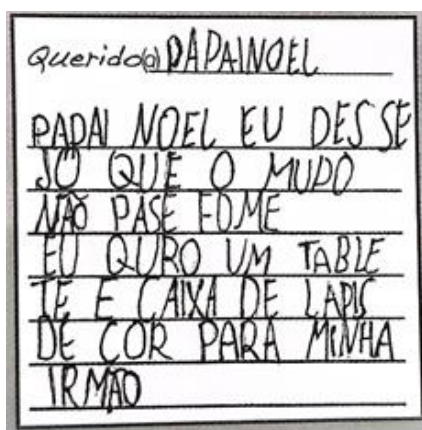 Querido(a) PAPAINOEL
PAPAI NOEL EU DESSE
JO QUE O MUDO
NÃO PASE FOME
EU QURO UM TABLE
TE E CAIXA DE LAPIS
DE COR PARA MINHA
IRMÃO